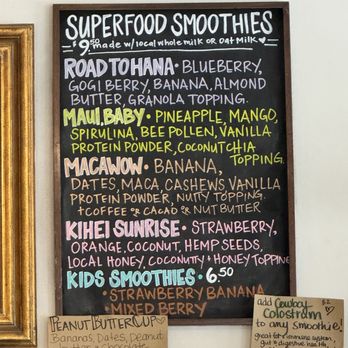 SUPERFOOD SMOOTHIES
$9.50 made w/ local whole milk or oat milk
ROAD TO HANA • BLUEBERRY,
GOGI BERRY, BANANA, ALMOND
BUTTER, GRANOLA TOPPING.
MAUI, BABY • PINEAPPLE, MANGO,
SPIRULINA, BEE POLLEN, VANILLA
PROTEIN POWDER, COCONUT CHIA
TOPPING.
MACAWOW • BANANA,
DATES, MACA, CASHEWS, VANILLA
PROTEIN POWDER, NUTTY TOPPING.
+COFFEE OR CACAO OR NUT BUTTER
KIHEI SUNRISE • STRAWBERRY,
ORANGE, COCONUT, HEMP SEEDS,
LOCAL HONEY, COCONUTTY + HONEY TOPPING
KIDS SMOOTHIES • 6.50
• STRAWBERRY BANANA
• MIXED BERRY
PEANUT BUTTER CUP
Bananas, Dates, Peanut
add Cowboy $2
Colostrum
to any smoothie!
great for immune system
gut & digestive health